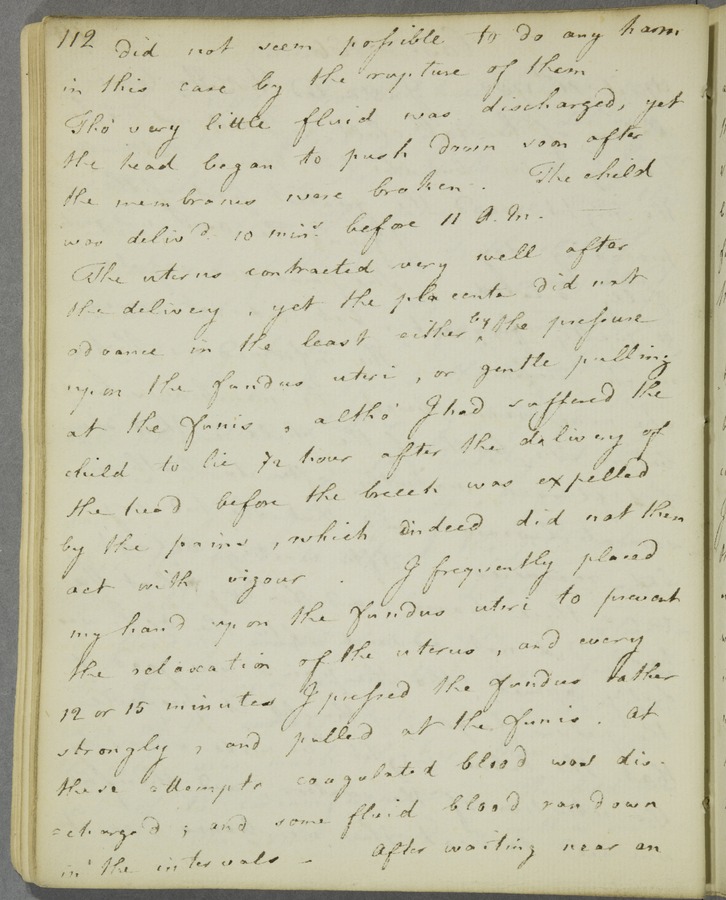 112 did not seem possible to do any harm
in this case by the rupture of them
Tho' very little fluid was discharged, yet
the head began to push down soon after
the membranes were broken. The child
was deliv'd 10 mins. before 11 A.M.
The uterus contracted very well after
the delivery, yet the placenta did not
advance in the least either by the pressure
upon the fundus uteri, or gentle pulling
at the funis, altho' I had suffered the
child to lie 1/2 hour after the delivery of
the head before the breech was expelled
by the pains, which indeed did not then
act with vigour. I frequently placed
my hand upon the fundus uteri to prevent
the relaxation of the uterus, and every
12 or 15 minutes I pressed the fundus rather
strongly, and pulled at the funis. At
these attempts coagulated blood was dis-
-charge'd; and some fluid blood ran down
in the intervals - After waiting near an